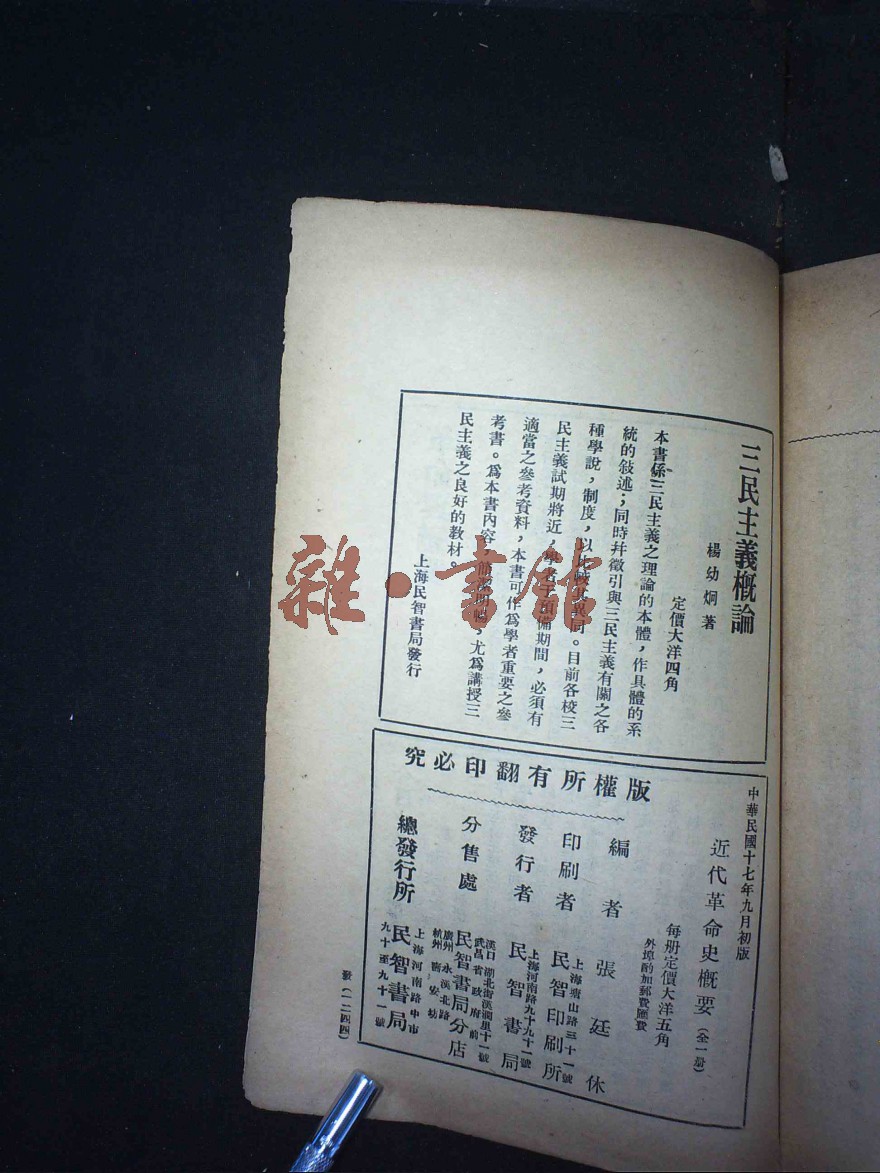 三民主義概論
楊幼炯著
定價大洋四角
本書係三民主義之理論的本體，作具體的系
統的敍述；同時幷徵引與三民主義有關之各
種學說，制度，以比較其異同。目前各校三
民主義試期將近，學者於預備期間，必須有
適當之參考資料，本書可作爲學者重要之參
考書。爲本書內容，簡潔明暢，尤爲講授三
民主義之良好的教材。
上海民智書局發行
中華民國十七年九月初版
近代革命史概要（全一册）
每册定價大洋五角
外埠酌加郵費匯費
版權所有翻印必究
編者 張廷休
印刷者 上海塘山路三十一號
民智印刷所
發行者 上海河南路九十九十一號
民智書局
分售處 漢口 湖北街漢潤里十一號
武昌 省政府前
民智書局分店
廣州 永漢北路
杭州 安坊
總發行所 上海河南路中市
民智書局
九十至九十一號
（一二四四）
雜·書館